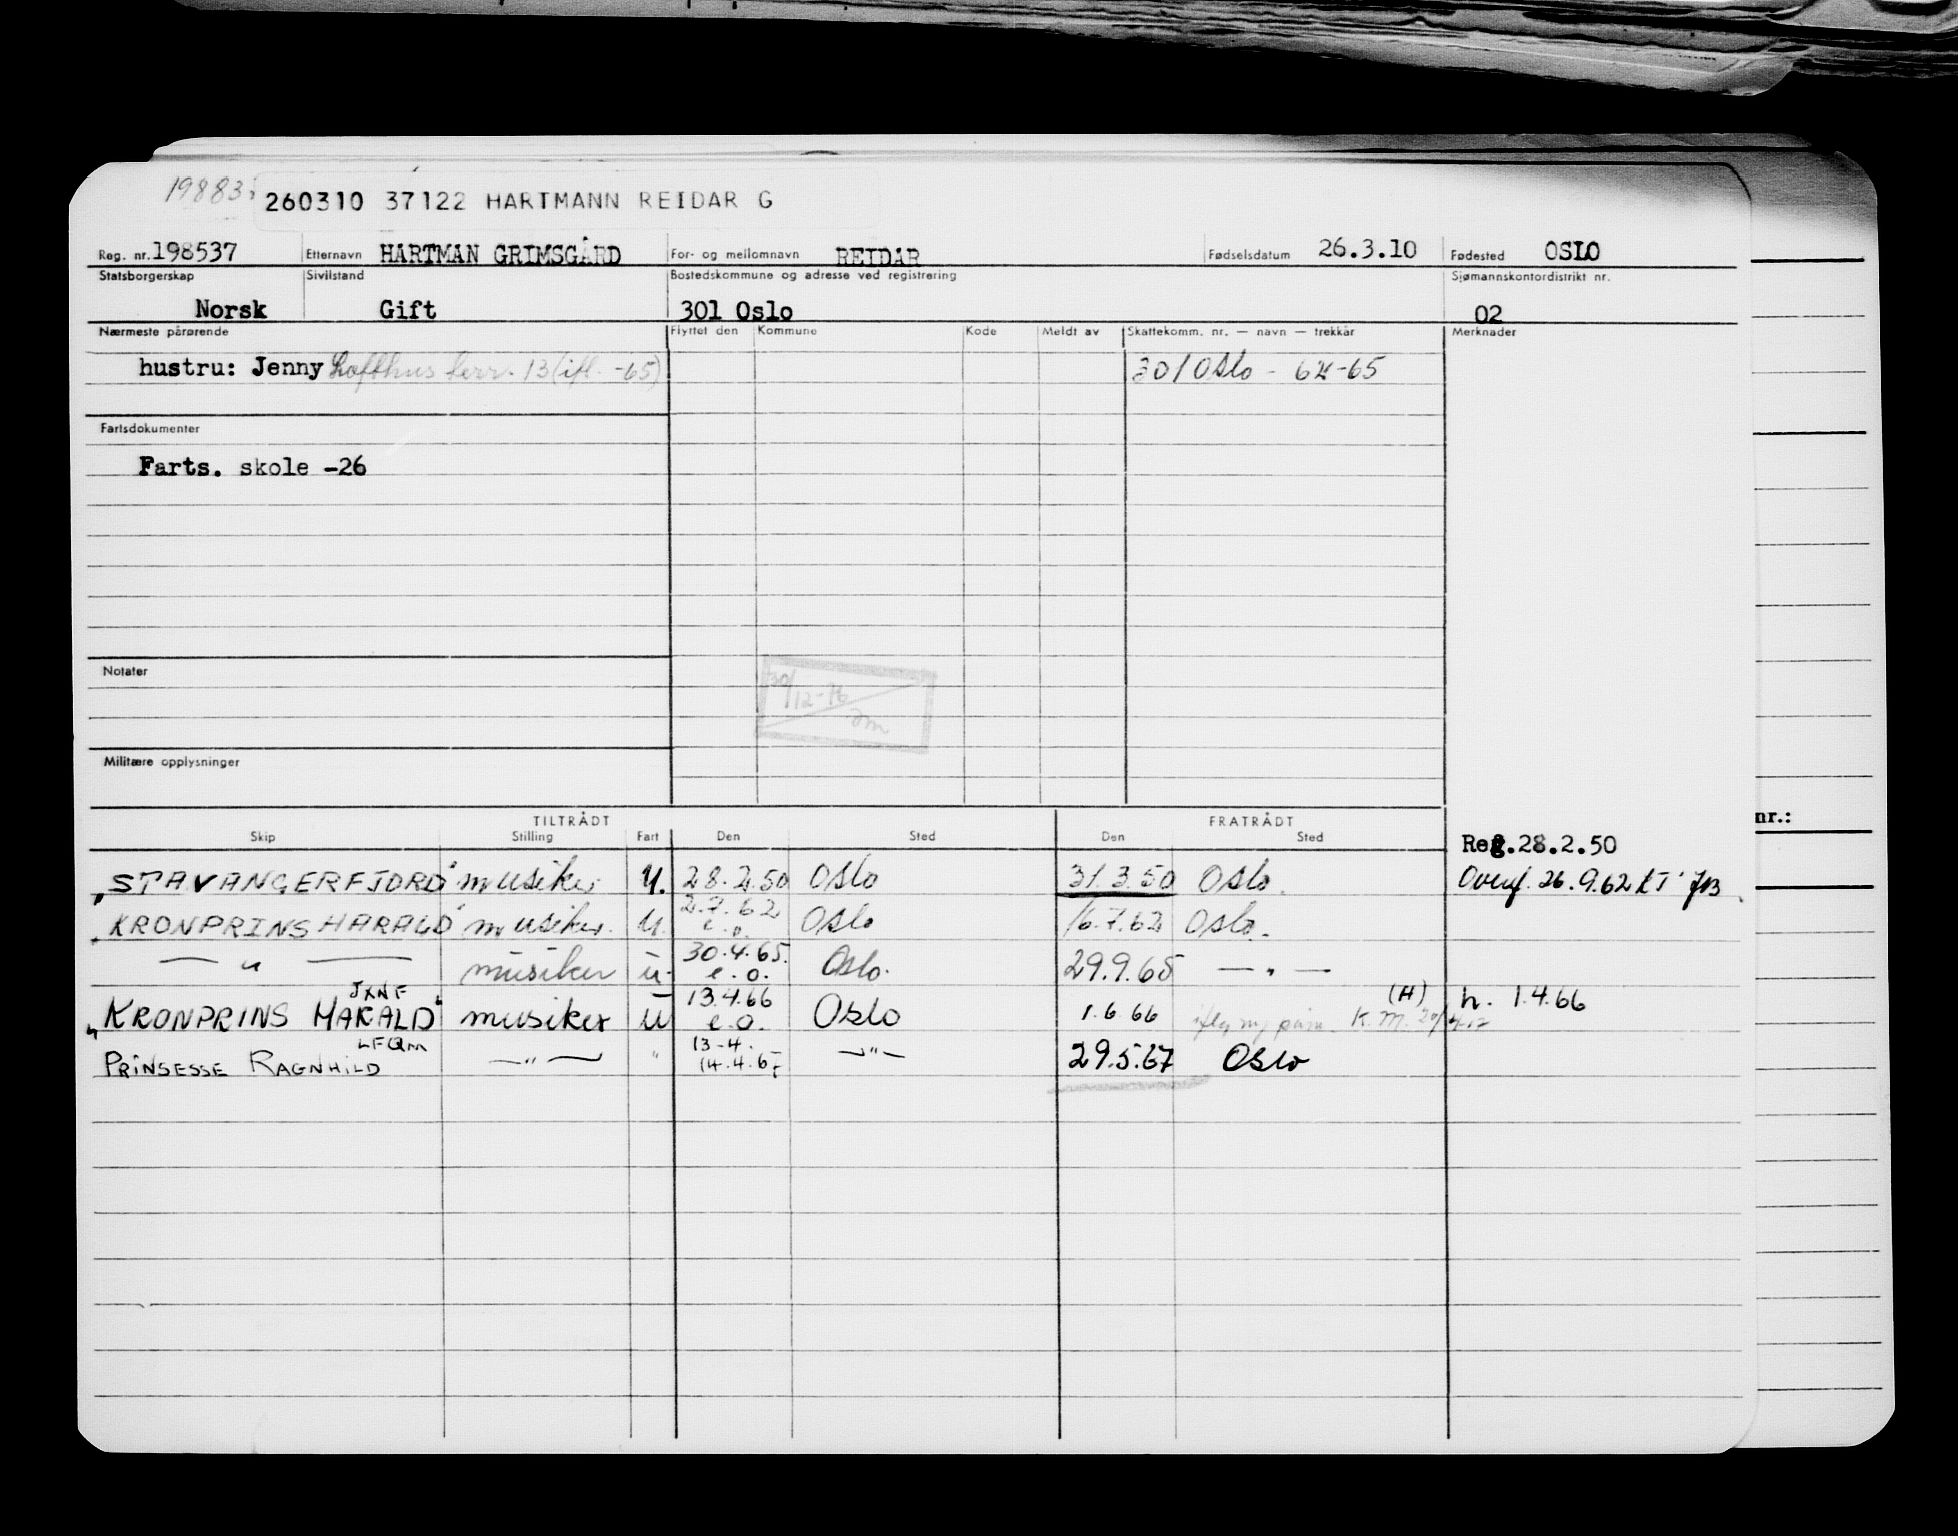 19883
260310 37122 HARTMANN REIDAR G
Reg. nr. 198537 Etternavn HARTMAN GRIMSGÅRD For- og mellomnavn REIDAR Fødselsdatum 26.3.10 Fødested OSLO
Statsborgerskap Sivilstand Bostedskommune og adresse ved registrering Sjømannskontordistrikt nr.
Norsk Gift 301 Oslo 02
Nærmeste pårørende Flyttet den Kommune Kode Meldt av Skattekomm. nr. — navn — trekkår Merknader
hustru: Jenny Lofthus terr. 13 (ifl. -65) 301 Oslo - 64-65
Fartsdokumenter
Farts. skole -26
Notater
30/12-76
Militære opplysninger
TILTRÅDT FRATRÅDT
Skip Stilling Fart Den Sted Den Sted
nr.:
Reg.28.2.50
"STAVANGERFJORD" musiker U. 28.2.50 Oslo 31.3.50 Oslo. Overf. 26.9.62
"KRONPRINS HARALD" musiker. U. 2.7.62 e.o. Oslo 16.7.62 Oslo.
— " — musiker u. 30.4.65. e.o. Oslo. 29.9.65 — " —
JXNF
"KRONPRINS HARALD" musiker U 13.4.66 e.o. Oslo 1.6.66 K.M. (H) h. 1.4.66
LFQM
PRINSESSE RAGNHILD — " — " 13-4. 14.4.67 — " — 29.5.67 Oslo